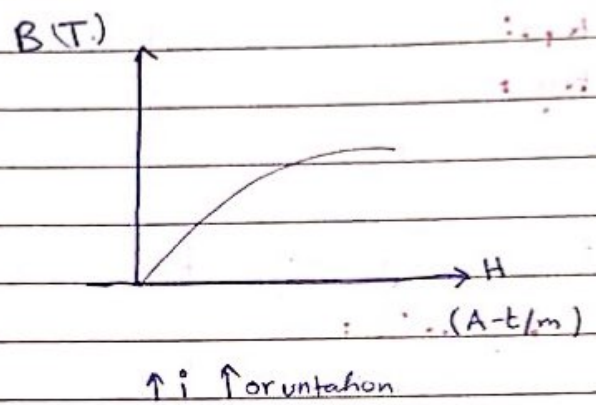 B (T.)
H
(A-t/m)
↑ i ↑ oruntahon